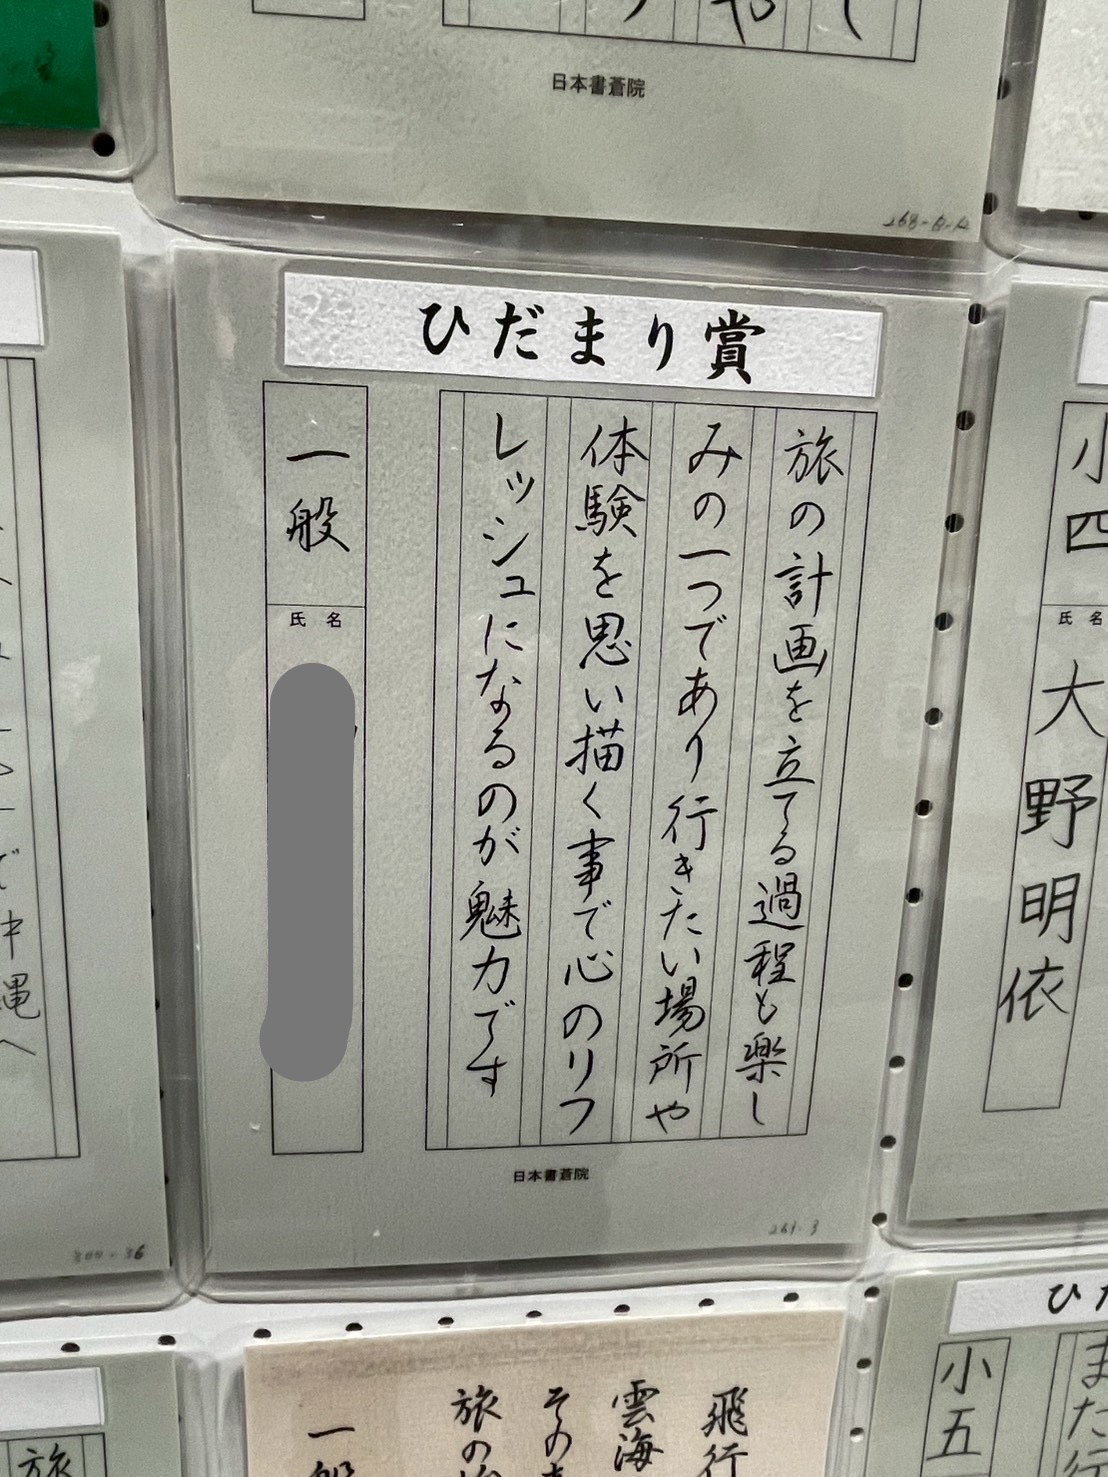 や
し
日本書蒼院
ひだまり賞
旅の計画を立てる過程も楽し
みの一つであり行きたい場所や
体験を思い描く事で心のリフ
レッシュになるのが魅力です
一般
氏名
日本書蒼院
261-3
小四
氏名
大野明依
沖縄へ
飛行
雲海
その
旅の
一般
ひだ
また行
小五
旅